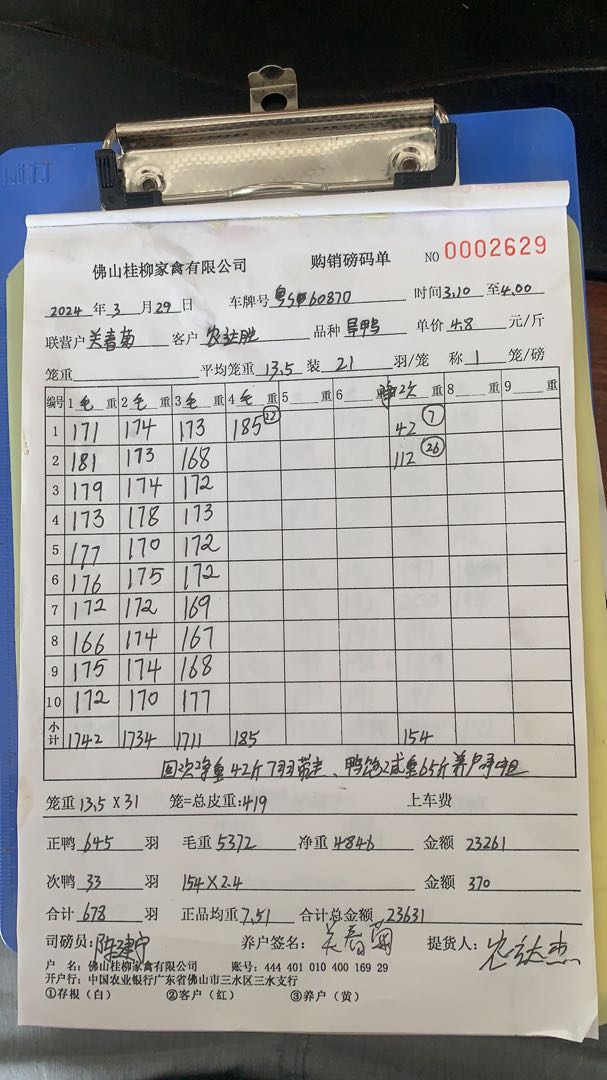 佛山桂柳家禽有限公司 购销磅码单 NO 0002629
2024 年 3 月 29 日 车牌号 60870 时间 3.10 至 4.00
联营户 关春菊 客户 品种 单价 4.8 元/斤
笼重 平均笼重 13.5 装 21 羽/笼 称 1 笼/磅
编号 1 毛 重 2 毛 重 3 毛 重 4 毛 重 5 重 6 重 净次 重 8 重 9 重
1 171 174 173 185 22 42 7
2 181 173 168 112 26
3 179 174 172
4 173 178 173
5 177 170 172
6 176 175 172
7 172 172 169
8 166 174 167
9 175 174 168
10 172 170 177
小计 1742 1734 1711 185 154
次净重42斤7羽 鸭 减重65斤养户承担
笼重 13.5 X 31 笼=总皮重: 419 上车费
正鸭 645 羽 毛重 5372 净重 4846 金额 23261
次鸭 33 羽 154 X 2.4 金额 370
合计 678 羽 正品均重 7.51 合计总金额 23631
司磅员: 陈建宁 养户签名: 关春菊 提货人:
户 名: 佛山桂柳家禽有限公司 账号: 444 401 010 400 169 29
开户行: 中国农业银行广东省佛山市三水区三水支行
①存根（白） ②客户（红） ③养户（黄）